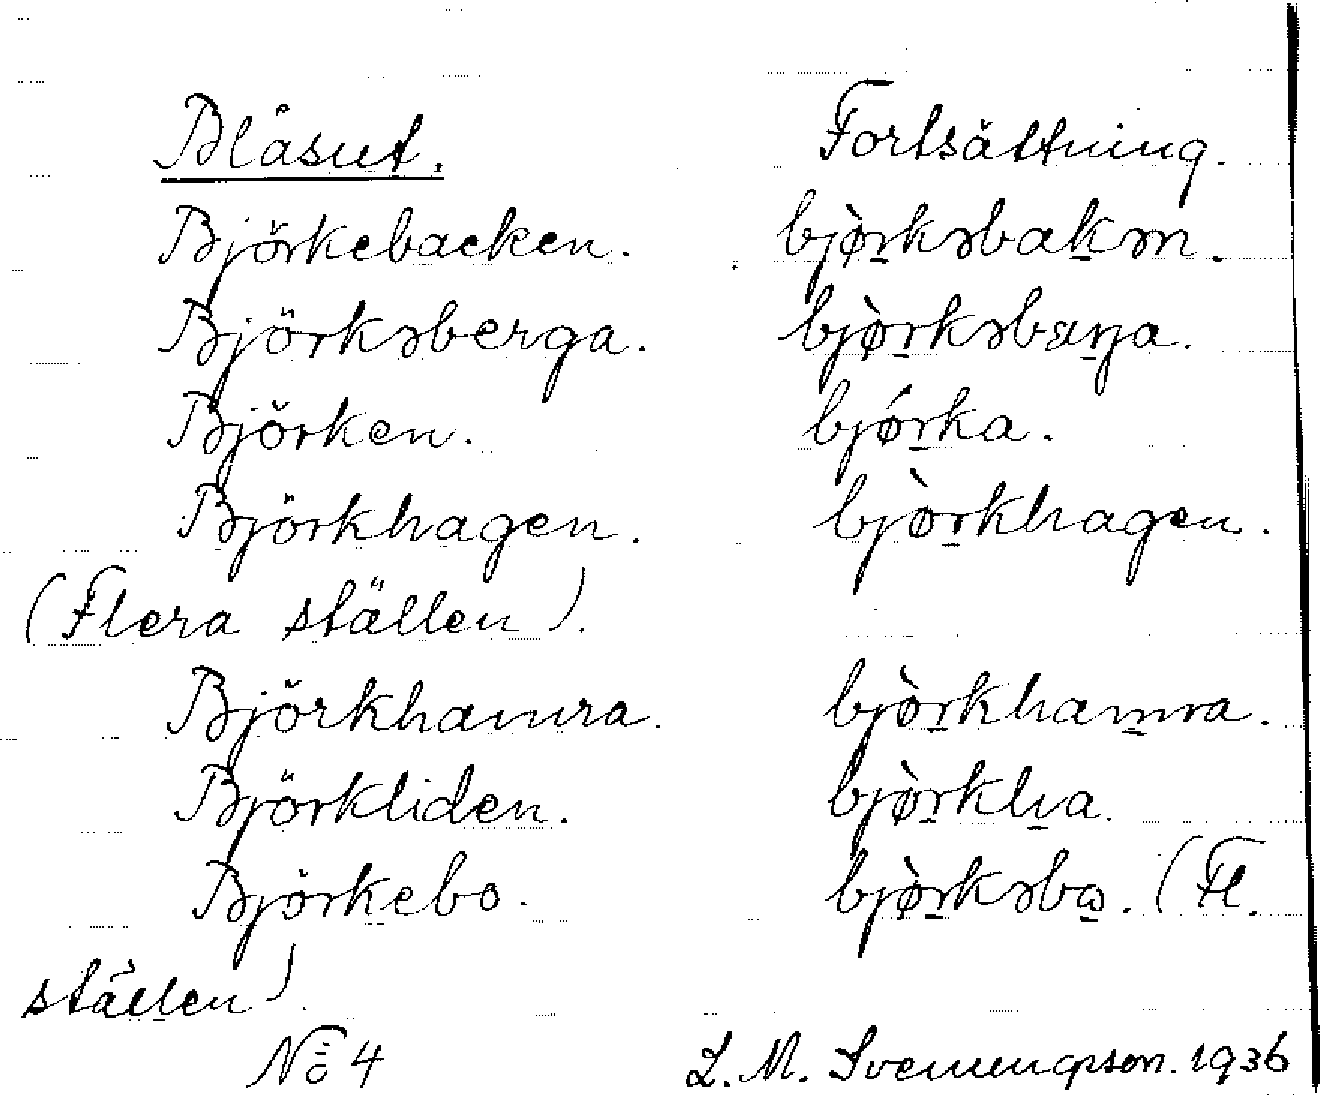 Blåsut. Fortsättning.
Björkebacken. bjø̀rkəbakən.
Björkəberga. bjø̀rkəbærja.
Björken. bjǿrka.
Björkhagen. bjørkhagen.
(Flera ställen).
Björkhamra. bjørkhamra.
Björkliden. bjø̀rklıa.
Björkebo. bjø̀rkəbω. (Fl.
ställen).
No 4 L. M. 1936